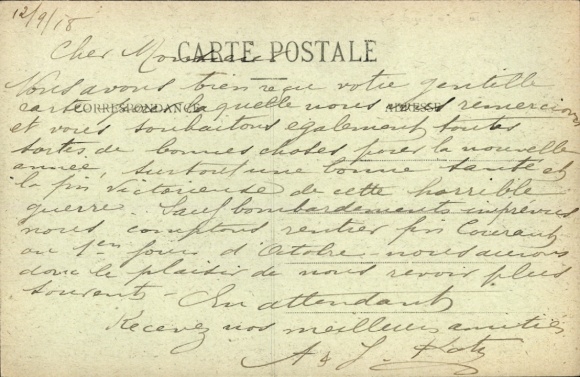 12/9/18
Cher Monsieur
CARTE POSTALE
Nous avons bien reçu votre gentille
CORRESPONDANCE
ADRESSE
carte pour laquelle nous vous remercions
et vous souhaitons également toutes
sortes de bonnes choses pour la nouvelle
année, surtout une bonne santé et
la fin victorieuse de cette horrible
guerre. Sauf bombardements imprévus
nous comptons rentrer fin Courant
ou 1er jours d'Octobre nous aurons
donc le plaisir de nous revoir plus
souvent - En attendant
Recevez nos meilleures amitiés
A & J. Katz